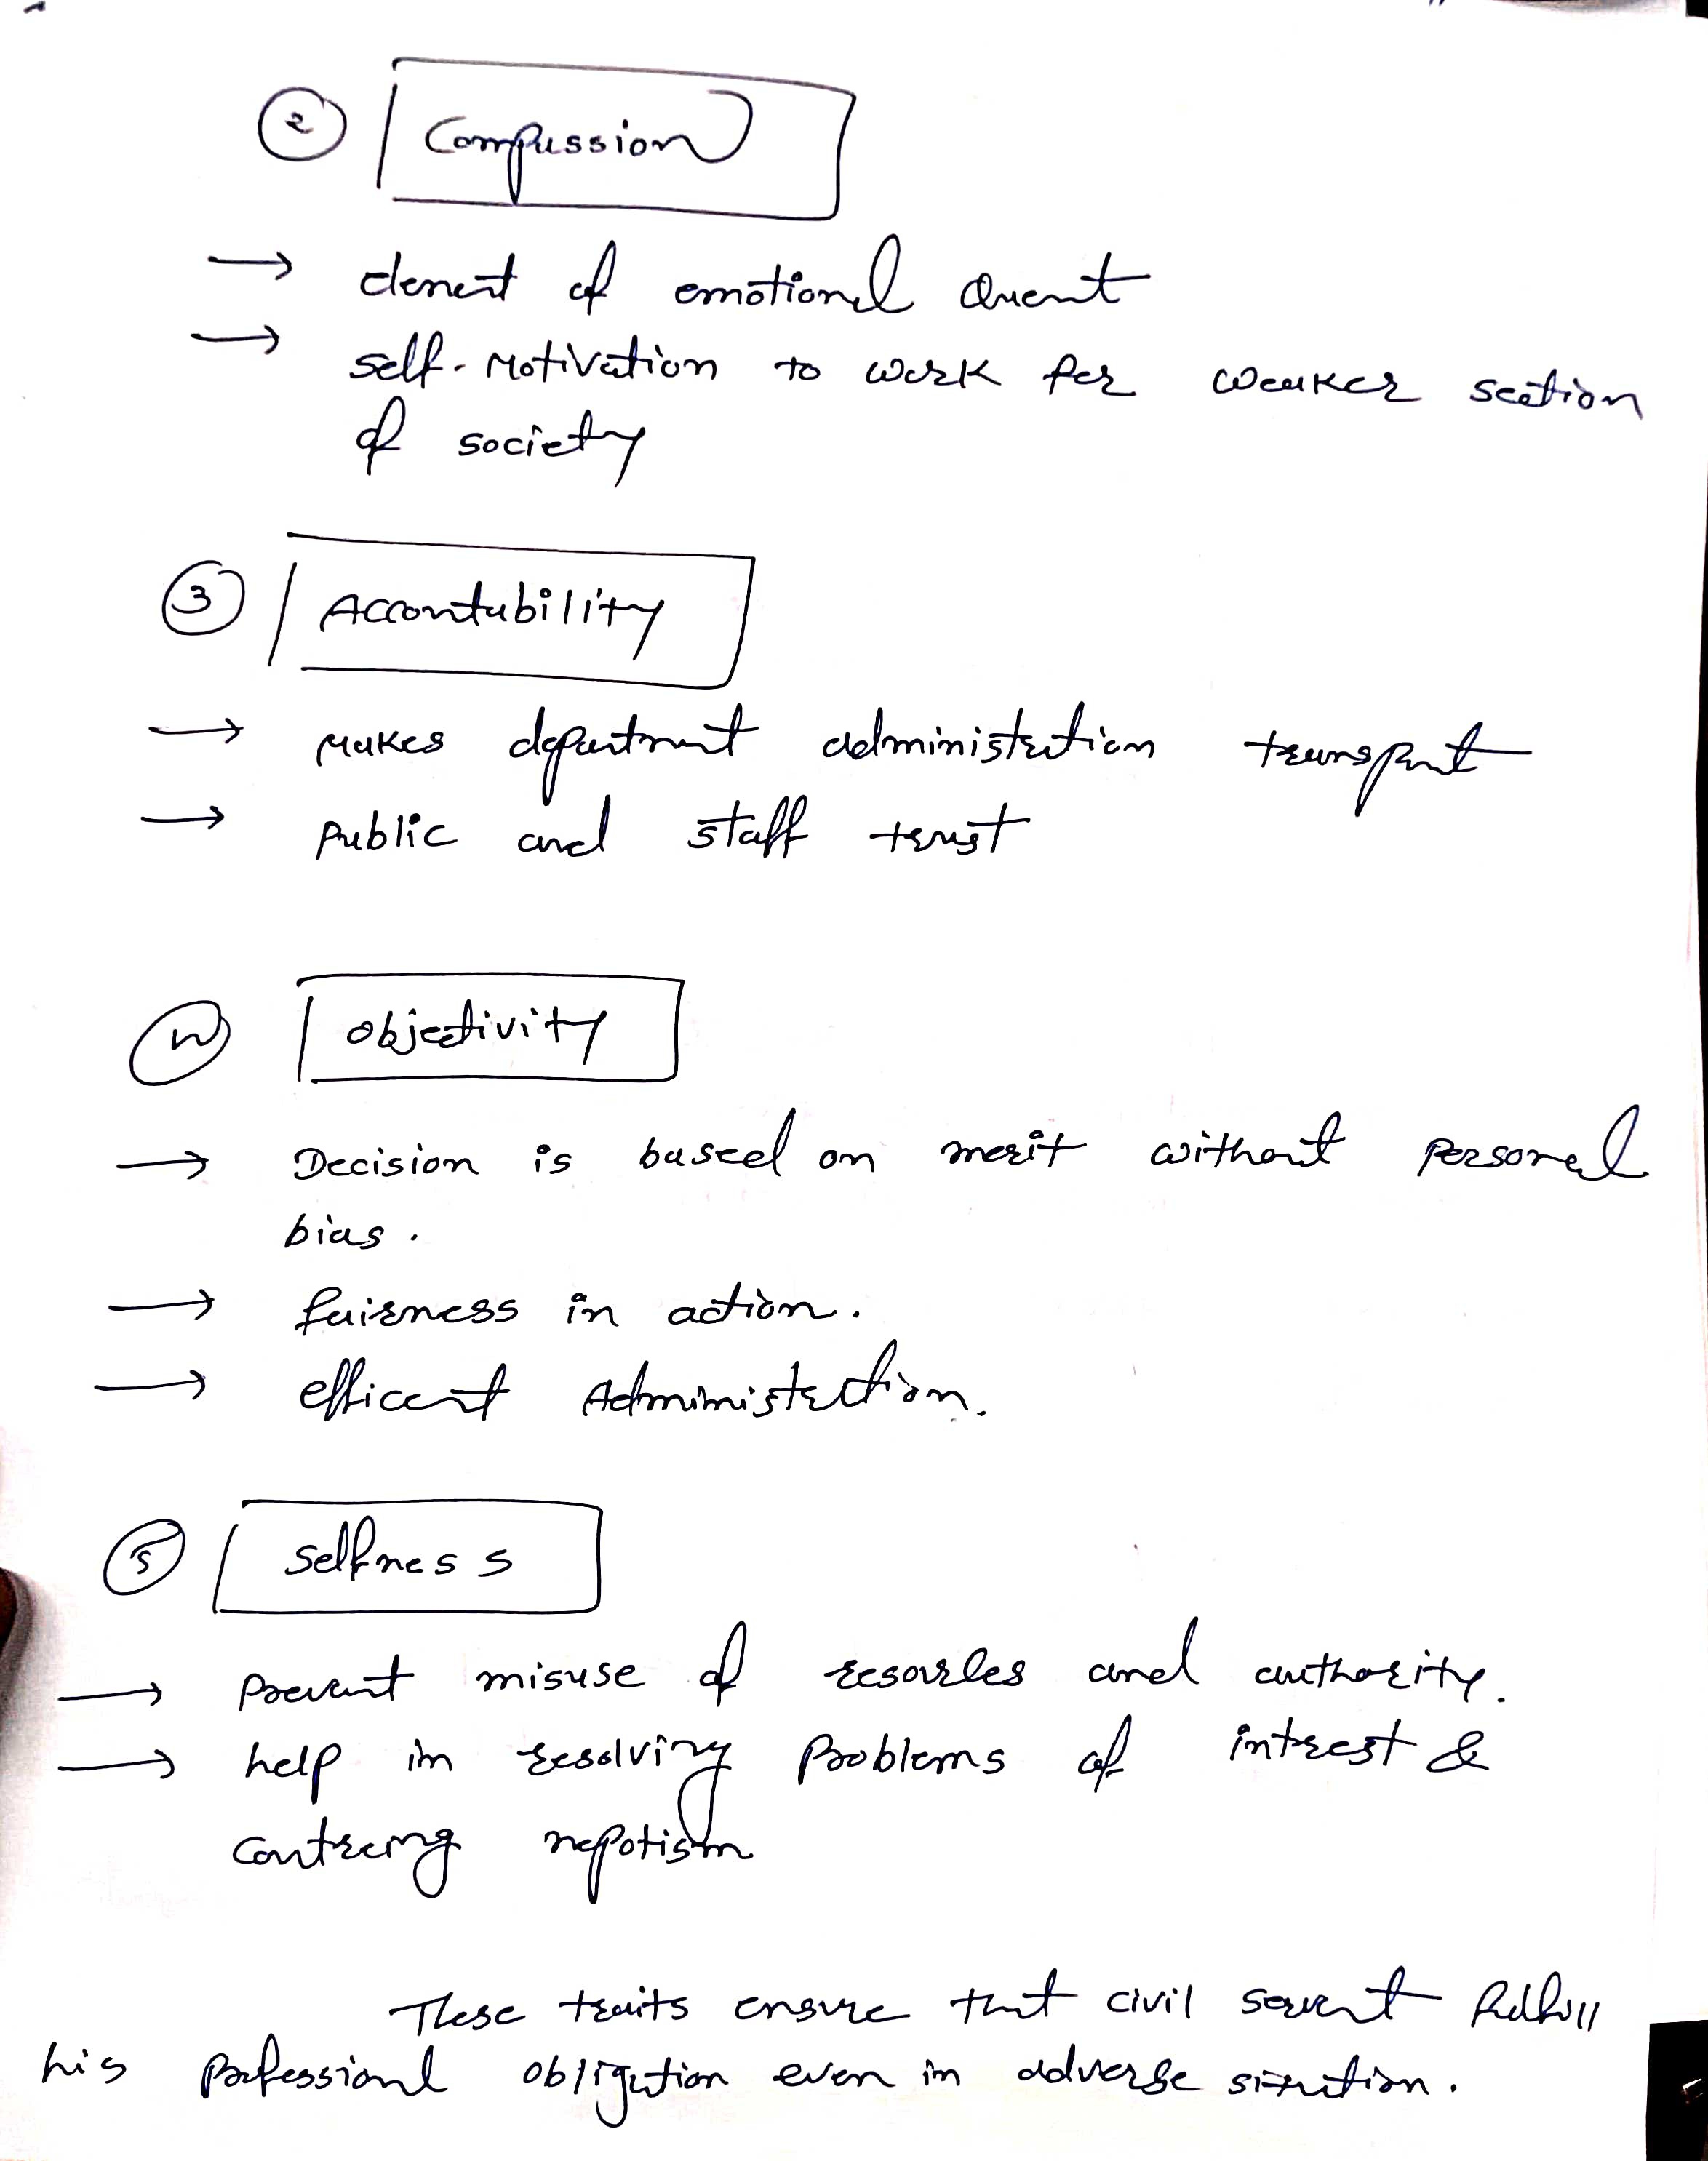 2 Compassion
→ element of emotional Quent
→ self-motivation to work for weaker section
of society
3 Accontability
→ Makes department administration transprnt
→ Public and staff trust
objectivity
→ Decision is based on merit without personal
bias.
→ fairness in action.
→ efficent Administration.
5 selfness
→ prevent misuse of resources and authority.
→ help in resolving problems of intrest &
nepotism
These traits ensure that civil servent fulfill
his professional obligation even in adverse situation.